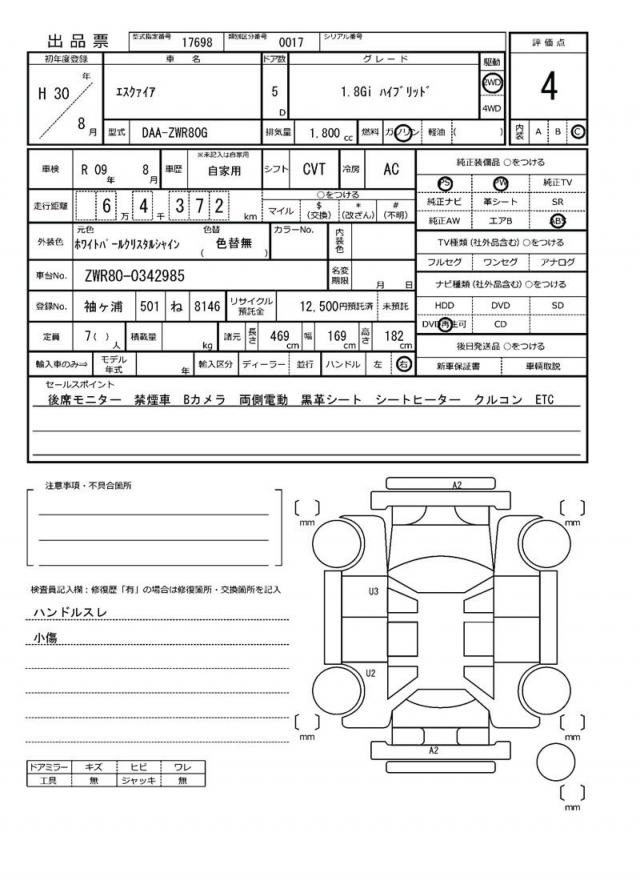 出品票 型式指定番号 17698 類別区分番号 0017 シリアル番号
初年度登録 車名 ドア数 グレード 駆動 評価点
H 30 年 8 月 エスクァイア 5 D 1.8Gi ハイブリッド 2WD 4WD 4
型式 DAA-ZWR80G 排気量 1,800 cc 燃料 ガソリン 軽油 ( ) 内装 A B C
車検 R 09 年 8 月 車歴 ※未記入は自家用 自家用 シフト CVT 冷房 AC
純正装備品 ○をつける
PS PW 純正TV
純正ナビ 革シート SR
純正AW エアB ABS
走行距離 6 万 4 千 3 7 2 km ○をつける マイル $ (交換) * (改ざん) # (不明)
外装色 元色 ホワイトパールクリスタルシャイン 色替 ( 色替無 ) カラーNo. 内装色
TV種類 (社外品含む) ○をつける
フルセグ ワンセグ アナログ
車台No. ZWR80-0342985 名変期限 月 日
ナビ種類 (社外品含む) ○をつける
HDD DVD SD
DVD再生可 CD
登録No. 袖ヶ浦 501 ね 8146 リサイクル預託金 12,500円預託済 未預託
定員 7( ) 人 積載量 kg 諸元 長さ 469 cm 幅 169 cm 高さ 182 cm
後日発送品 ○をつける
新車保証書 車輌取説
輸入車のみ⇒ モデル年式 年 輸入区分 ディーラー 並行 ハンドル 左 右
セールスポイント
後席モニター 禁煙車 Bカメラ 両側電動 黒革シート シートヒーター クルコン ETC
注意事項・不具合箇所
検査員記入欄:修復歴「有」の場合は修復箇所・交換箇所を記入
ハンドルスレ
小傷
ドアミラー キズ ヒビ ワレ
工具 無 ジャッキ 無
A2
mm
mm
U3
U2
mm
mm
A2
mm